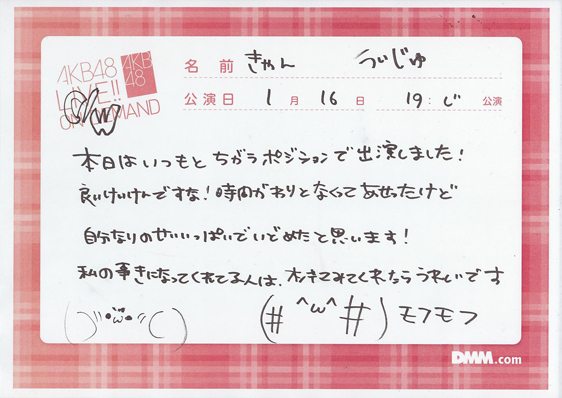 AKB48
LIVE!!
ON DEMAND
AKB
48
名前 きゃん うぃじゅ
公演日 1月16日 19:じ 公演
本日はいつもとちがうポジションで出演しました!
良いけいけんですな!時間がわりとなくてあせったけど
自分なりのせいいっぱいでいどめたと思います!
私の事きになってくれてる人は、オンデマみてくれたらうれしいです
(#^ω^#)モフモフ
DMM.com